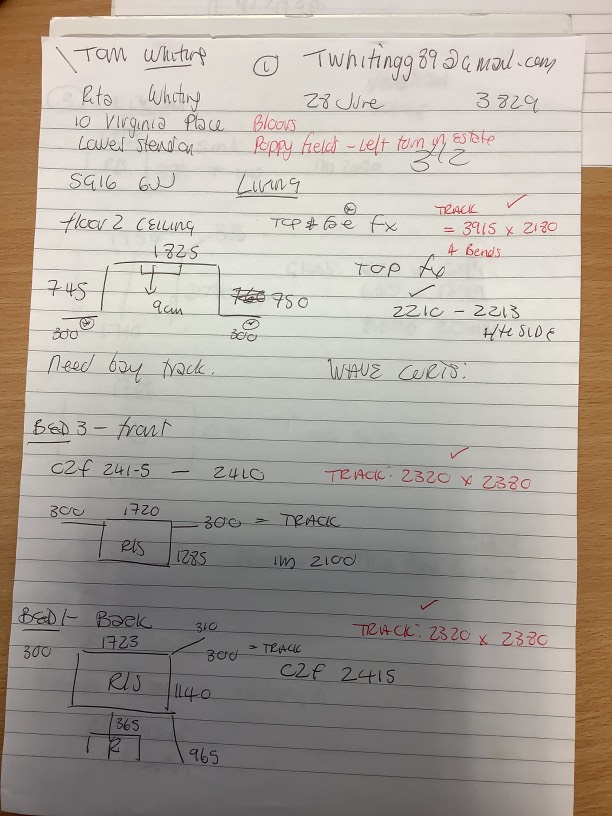 Tom Whiting ① Twhitingg89@gmail.com
Rita Whiting 28 June 3829
10 Virginia Place Bloors
Lower Stondon Poppy fields - Left turn in Estate
312
SG16 6JJ Living
floor 2 ceiling Top fx TRACK ✓
= 3915 x 2180
4 Bends
1825 TOP fx
745 9cm 750 ✓
2210 - 2213
H/H SIDE
300 300
Need bay track. WAVE CURTS:
BED 3 - front
C2f 241-5 - 2410 TRACK: 2320 x 2380 ✓
300 1720 300 = TRACK
R/S 1285 1m 2100
BED 1 - Back 310 TRACK: 2320 x 2380 ✓
300 1723 300 = TRACK
C2f 2415
R/S 1140
365
R 965